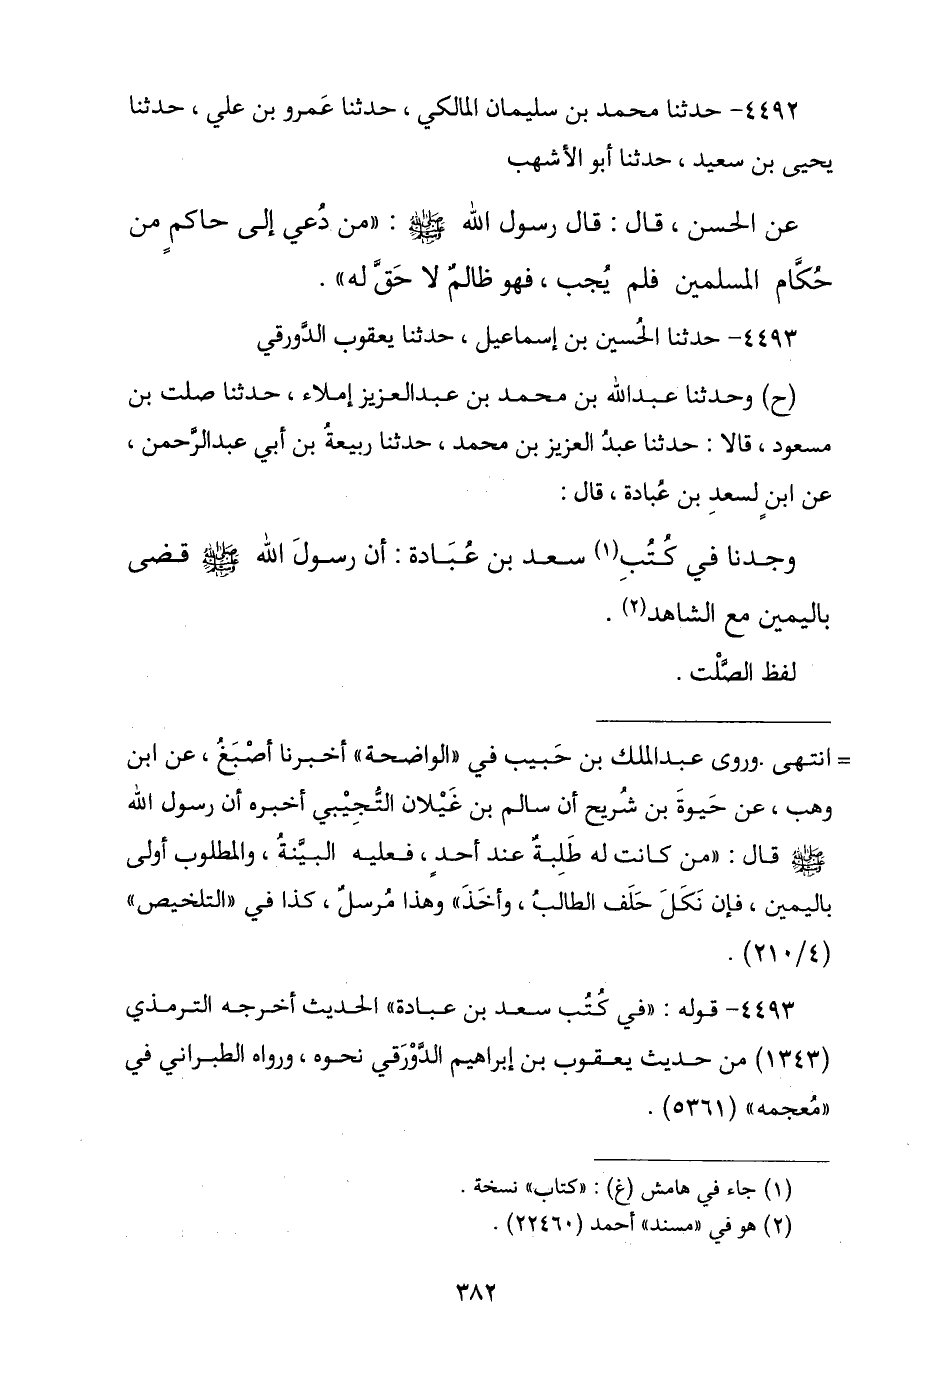 ٤٤٩٢- حدثنا محمد بن سليمان المالكي ، حدثنا عَمرو بن علي ، حدثنا
يحيى بن سعيد ، حدثنا أبو الأشهب
عن الحسن ، قال : قال رسول الله ﷺ : «من دُعي إلى حاكمٍ من
حُكَّام المسلمين فلم يُجب ، فهو ظالمٌ لا حَقَّ له» .
٤٤٩٣- حدثنا الحُسين بن إسماعيل ، حدثنا يعقوب الدَّورقي
(ح) وحدثنا عبدالله بن محمد بن عبدالعزيز إملاء ، حدثنا صلت بن
مسعود ، قالا : حدثنا عبدُ العزيز بن محمد ، حدثنا ربيعةُ بن أبي عبدالرَّحمن ،
عن ابنٍ لسعدِ بن عُبادة ، قال :
وجدنا في كُتُبِ(١) سعد بن عُبَادة : أن رسولَ الله ﷺ قضى
باليمين مع الشاهد(٢) .
لفظ الصَّلْت .
= انتهى .وروى عبدالملك بن حَبيب في «الواضحة» أخبرنا أصْبَغُ ، عن ابن
وهب ، عن حَيوةَ بن شُريح أن سالم بن غَيْلان التُّجِيْبي أخبره أن رسول الله
ﷺ قال : «من كانت له طَلِبةٌ عند أحدٍ ، فعليه البيَّنةُ ، والمطلوب أولى
باليمين ، فإن نَكَلَ حَلَف الطالبُ ، وأخَذَ» وهذا مُرسلٌ ، كذا في «التلخيص»
(٢١٠/٤) .
٤٤٩٣- قوله : «في كُتُب سعد بن عبادة» الحديث أخرجه الترمذي
(١٣٤٣) من حديث يعقوب بن إبراهيم الدَّوْرَقي نحوه ، ورواه الطبراني في
«مُعجمه» (٥٣٦١) .
(١) جاء في هامش (غ) : «كتاب» نسخة .
(٢) هو في «مسند» أحمد (٢٢٤٦٠) .
٣٨٢